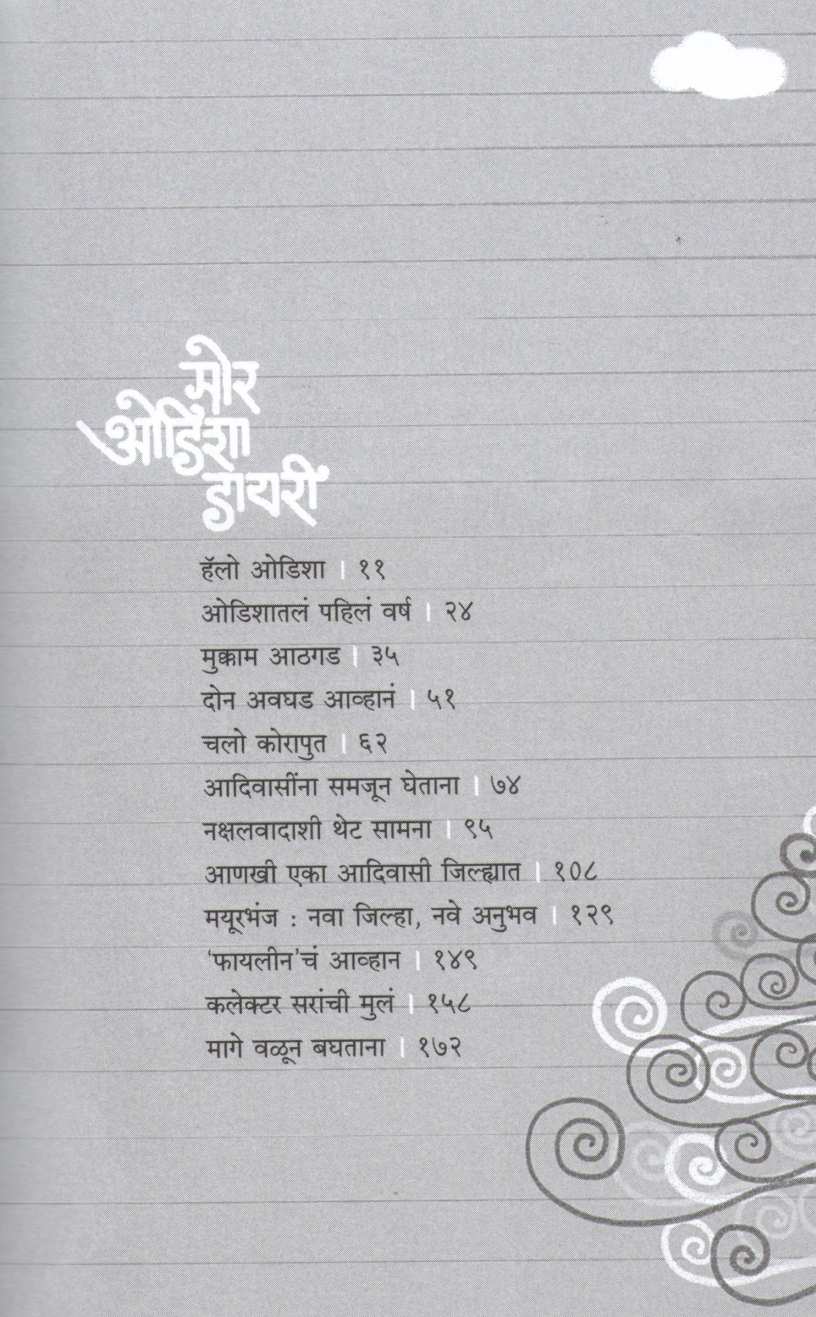 मोर
ओडिशा
डायरी
हॅलो ओडिशा | ११
ओडिशातलं पहिलं वर्ष | २४
मुक्काम आठगड | ३५
दोन अवघड आव्हानं | ५१
चलो कोरापुत | ६२
आदिवासींना समजून घेताना | ७४
नक्षलवादाशी थेट सामना | ९५
आणखी एका आदिवासी जिल्ह्यात | १०८
मयूरभंज : नवा जिल्हा, नवे अनुभव | १२९
'फायलीन'चं आव्हान | १४९
कलेक्टर सरांची मुलं | १५८
मागे वळून बघताना | १७२